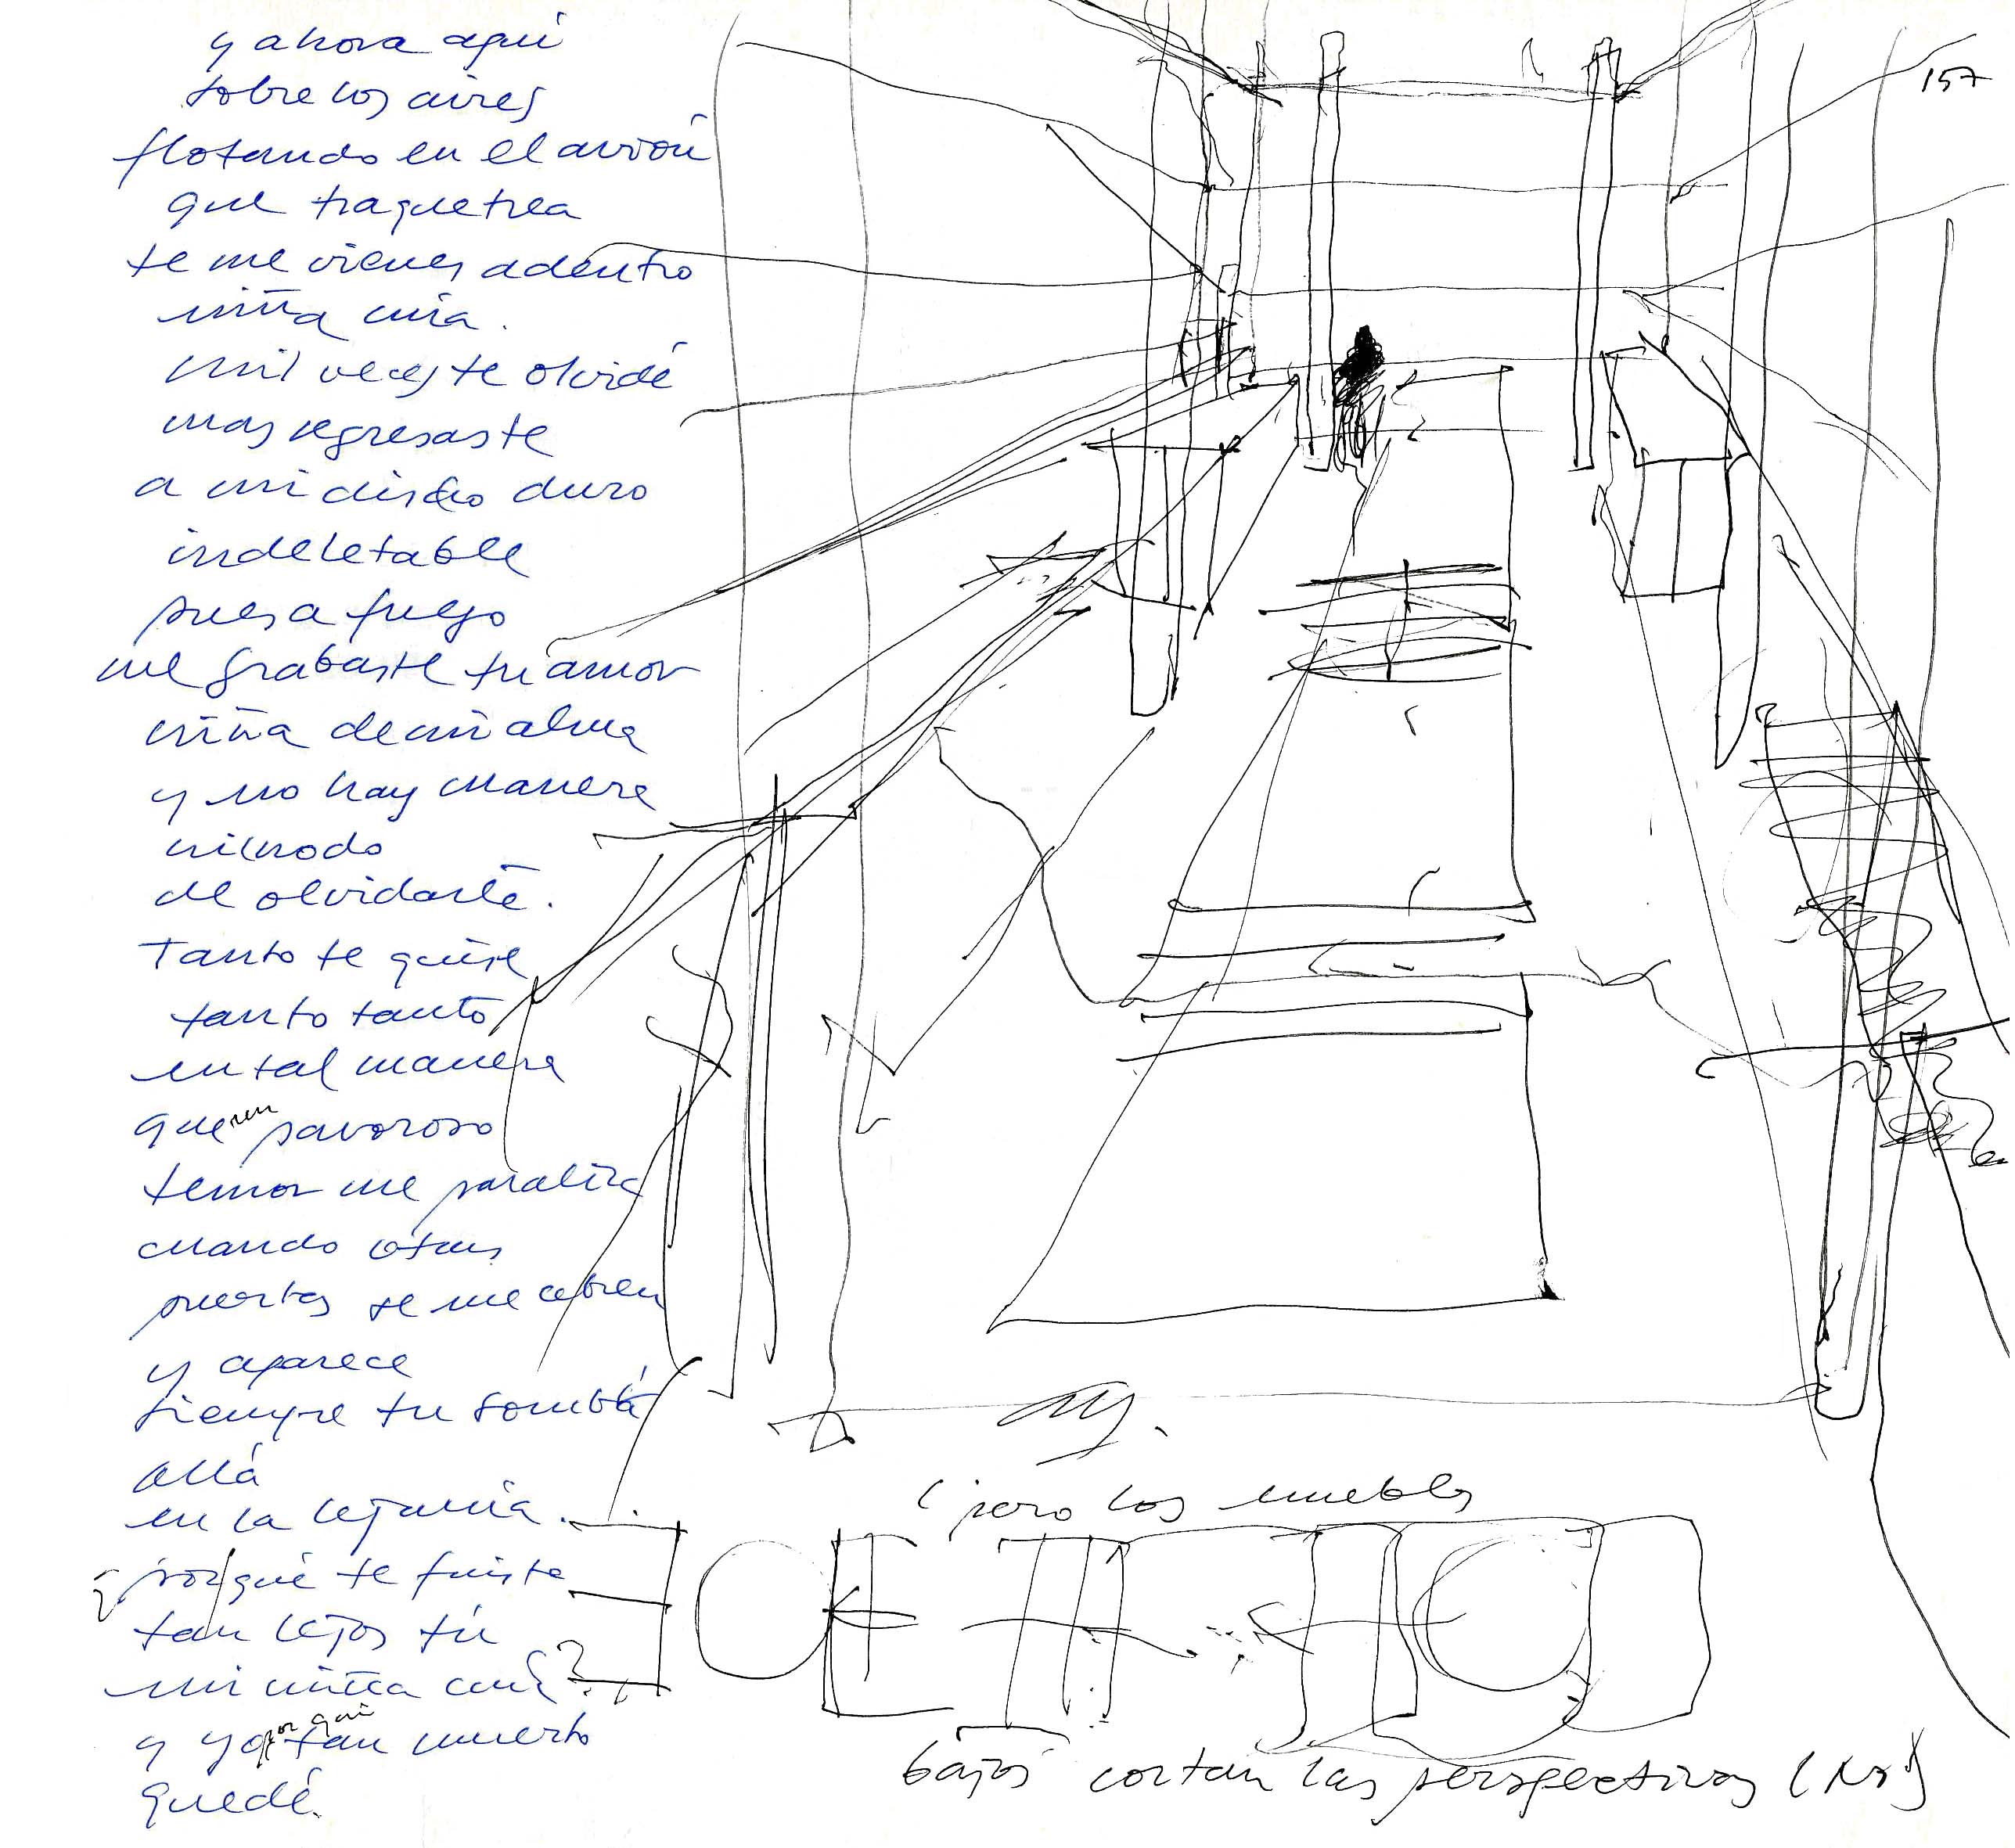 y ahora aquí
sobre los aires
flotando en el avión
que traquetrea
te me vienes adentro
niña mía.
mil veces te olvidé
mas regresaste
a mi disco duro
indeletable
pues a fuego
me grabaste tu amor
niña de mi alma
y no hay manera
ni modo
de olvidarte.
Tanto te quise
tanto tanto
en tal manera
que un pavoroso
temor me paraliza
cuando otras
puertas se me abren
y aparece
siempre tu sombra
allá
en la lejanía.
¿por qué te fuiste
tan lejos tú
mi niña mía?
y yo por qué tan muerto
quedé.
157
(pero los muebles
bajos cortan las perspectivas (No!)